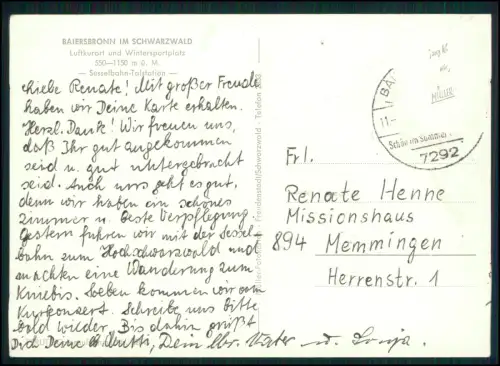 BAIERSBRONN IM SCHWARZWALD
Luftkurort und Wintersportplatz
550—1150 m ü. M.
— Sesselbahn-Talstation —
Liebe Renate! Mit großer Freude
haben wir Deine Karte erhalten.
Herzl. Dank! Wir freuen uns,
daß Ihr gut angekommen
seid u. gut untergebracht
seid. Auch uns geht es gut,
denn wir haben ein schönes
Zimmer u. beste Verpflegung.
Gestern fuhren wir mit der Sessel-
bahn zum Hochschwarzwald und
machten eine Wanderung zum
Kniebis. Soeben kommen wir vom
Kurkonzert. Schreibe uns bitte
bald wieder. Bis dahin grüßt
Dich Deine Mutti, Dein Vater u. Sonja.
Freudenstadt/Schwarzwald - Telefon
(BAI
11.-
Schön im Sommer
7292
Frl.
Renate Henne
Missionshaus
894 Memmingen
Herrenstr. 1